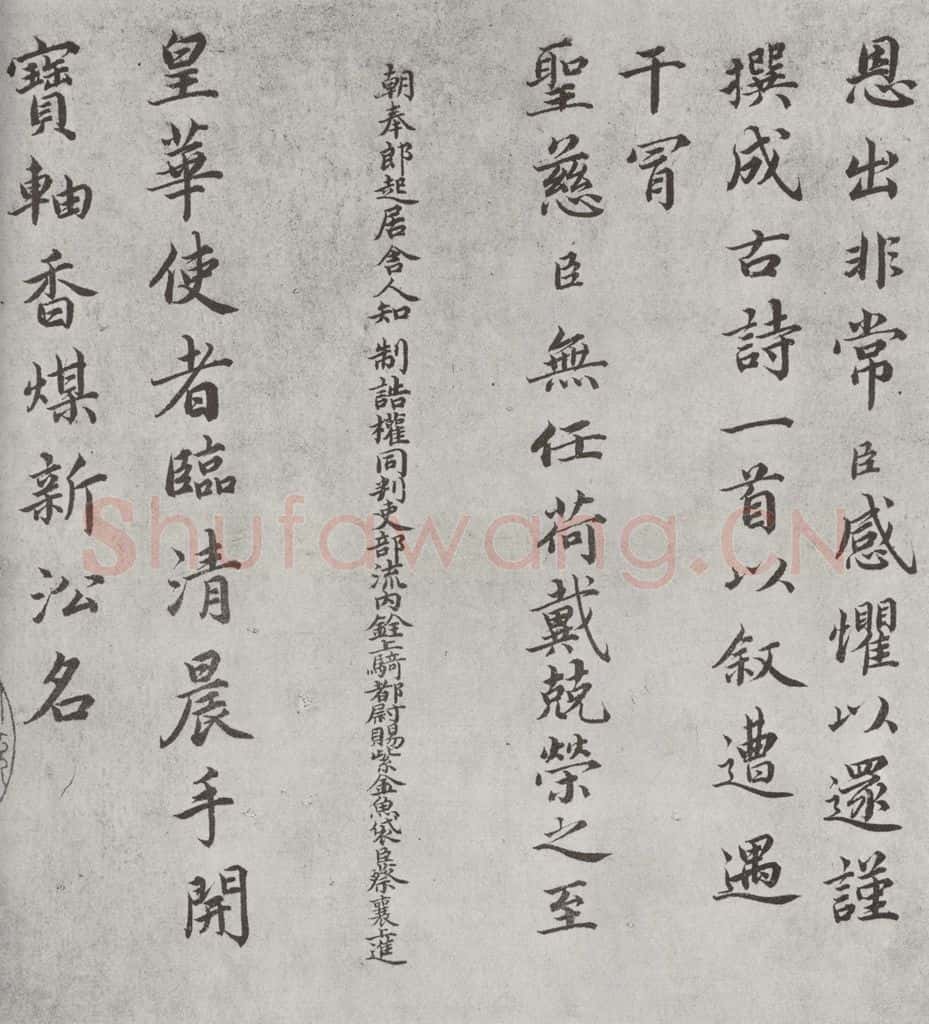 恩出非常臣感懼以還謹
撰成古詩一首以敘遭遇
干冒
聖慈臣無任荷戴兢榮之至
朝奉郎起居舍人知制誥權同判吏部流內銓上騎都尉賜紫金魚袋臣蔡襄上進
皇華使者臨清晨手開
寶軸香煤新沁名
Shufawang.CN